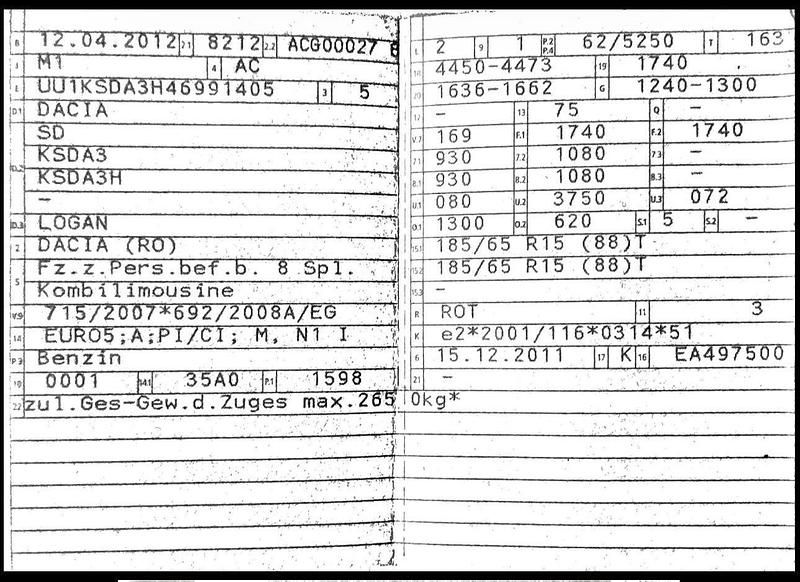 B 12.04.2012 2.1 8212 2.2 ACG00027
J M1 4 AC
E UU1KSDA3H46991405 3 5
D.1 DACIA
SD
D.2 KSDA3
KSDA3H
-
D.3 LOGAN
2 DACIA (RO)
5 Fz.z.Pers.bef.b. 8 Spl.
Kombilimousine
V.9 715/2007*692/2008A/EG
14 EURO5;A;PI/CI; M, N1 I
P.3 Benzin
10 0001 14.1 35A0 P.1 1598
22 zul.Ges-Gew.d.Zuges max.265
L 2 9 1 P.2 P.4 62/5250 T 163
18 4450-4473 19 1740
20 1636-1662 G 1240-1300
12 - 13 75 Q -
V.7 169 F.1 1740 F.2 1740
7.1 930 7.2 1080 7.3 -
8.1 930 8.2 1080 8.3 -
U.1 080 U.2 3750 U.3 072
O.1 1300 O.2 620 S.1 5 S.2 -
15.1 185/65 R15 (88)T
15.2 185/65 R15 (88)T
15.3 -
R ROT 11 3
K e2*2001/116*0314*51
6 15.12.2011 17 K 16 EA497500
21 -
0kg*